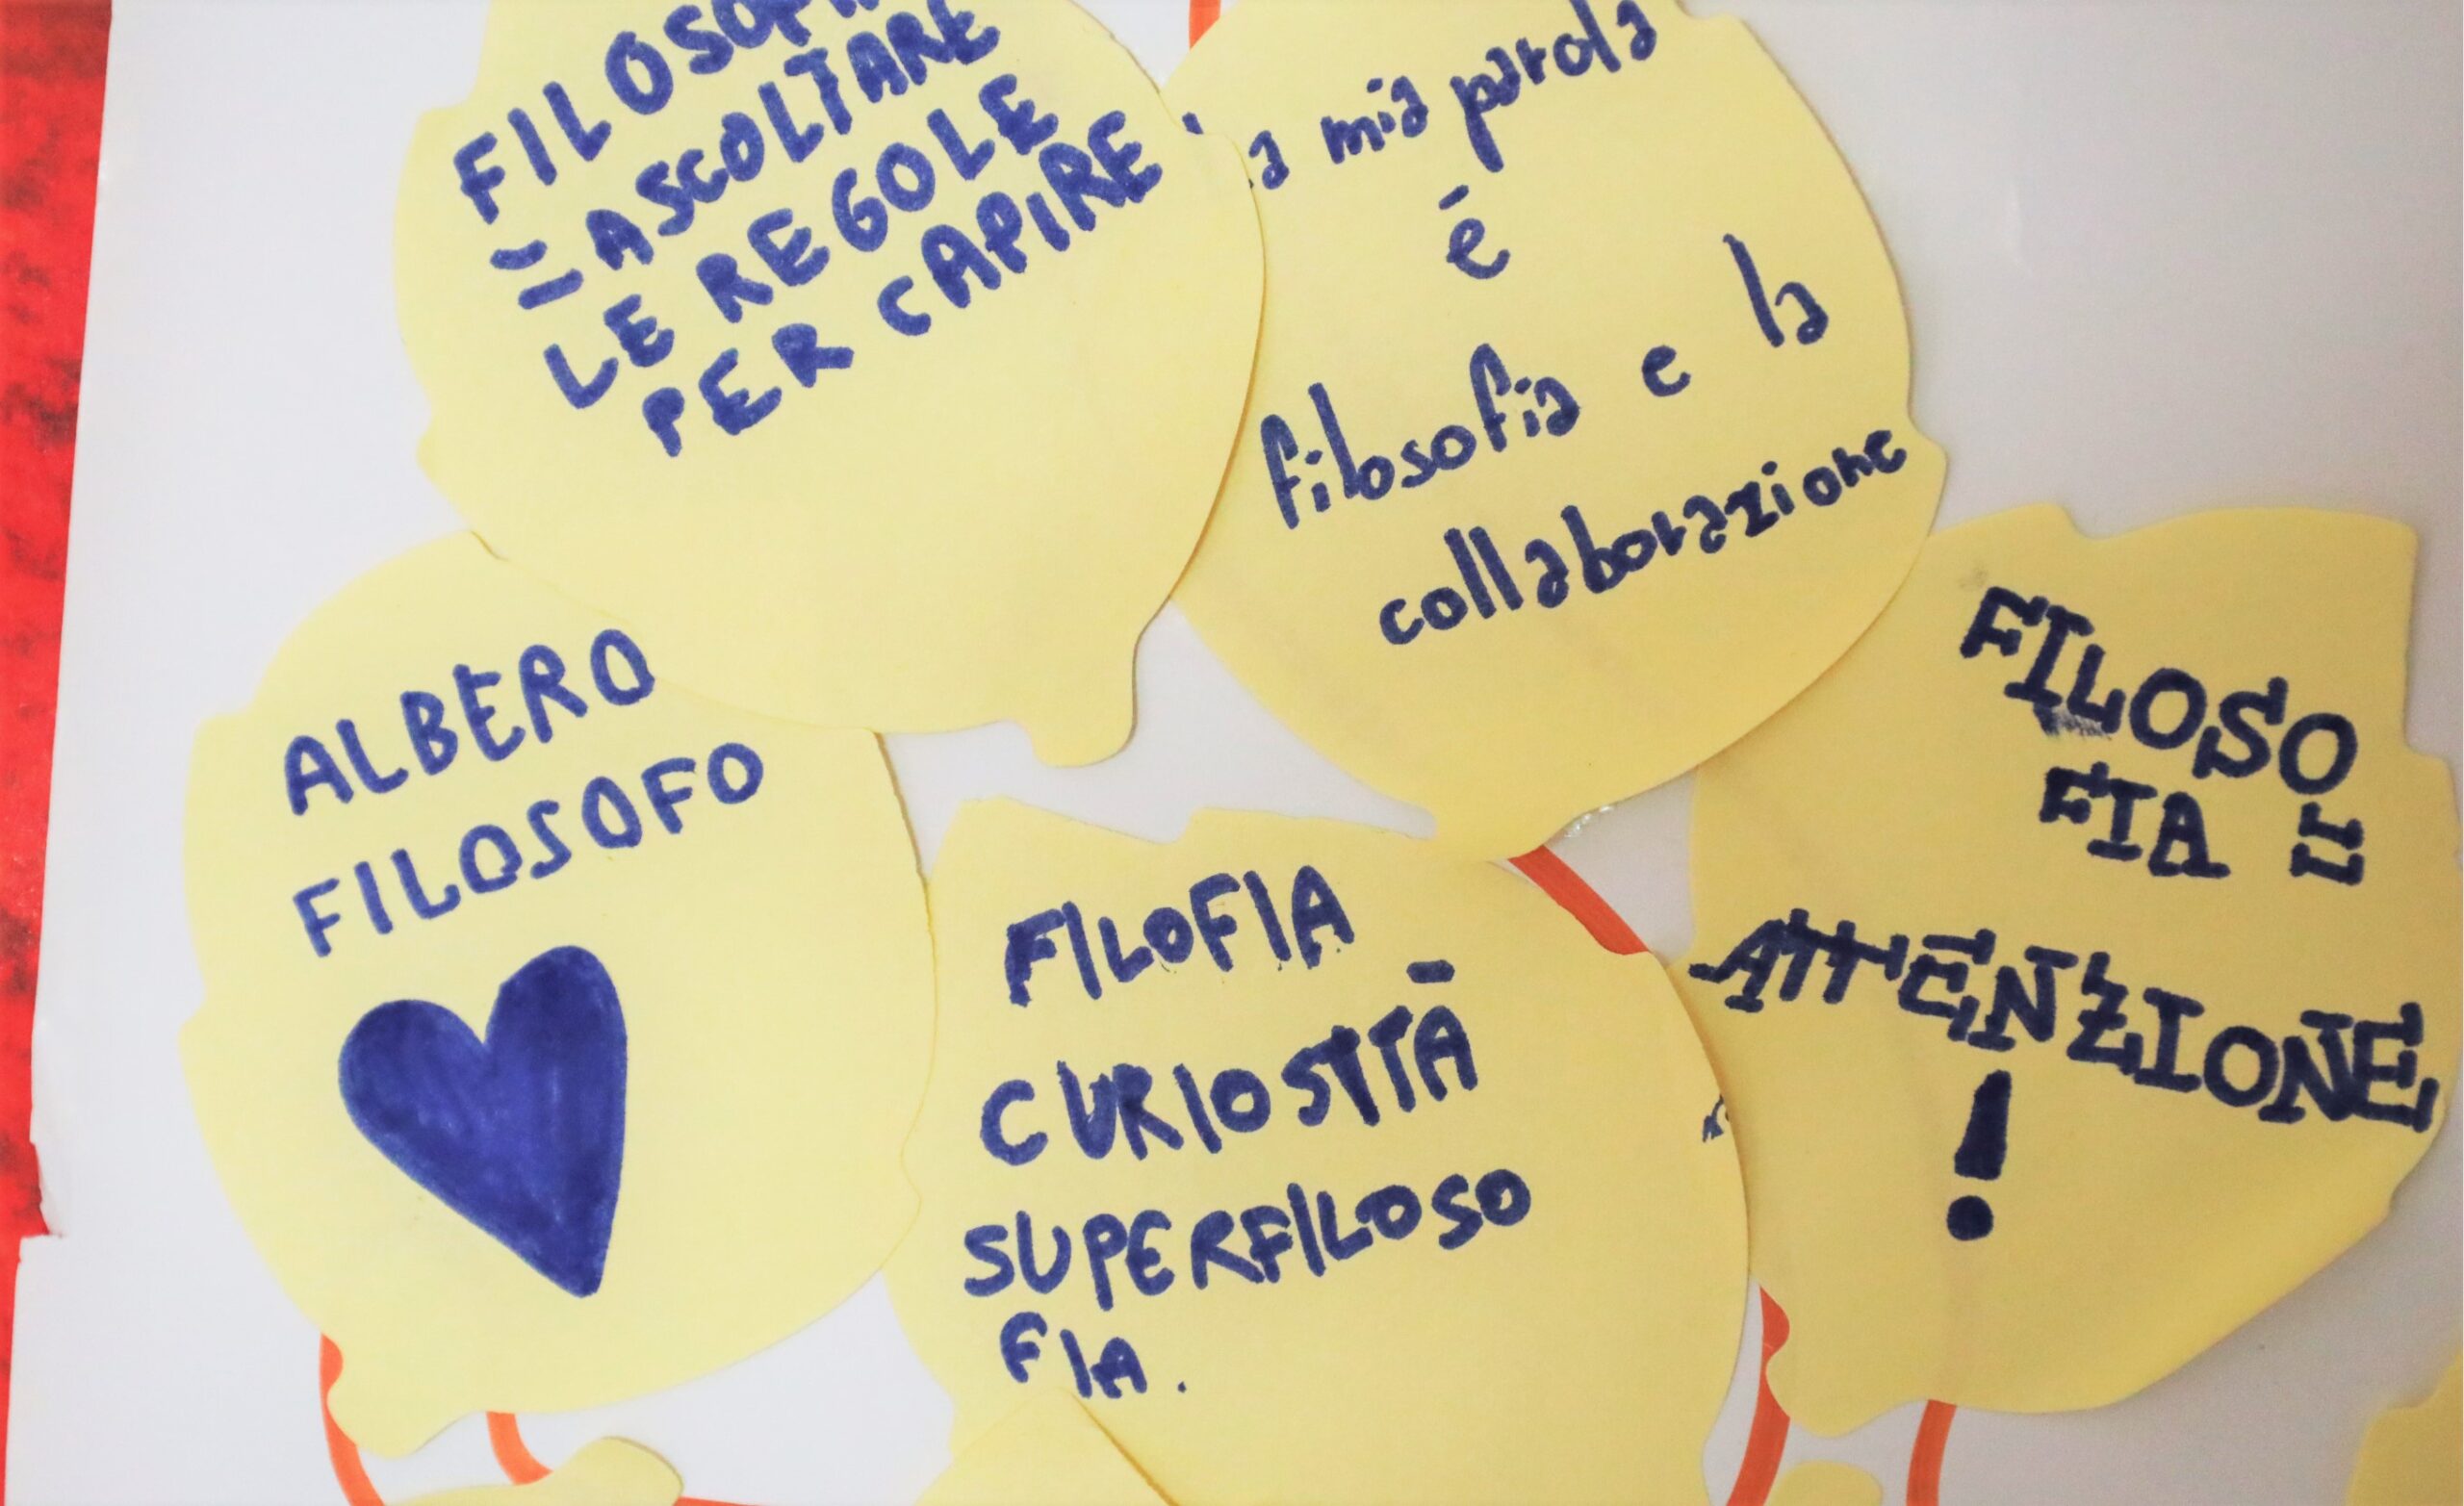 FILOSOFI
= ASCOLTARE
LE REGOLE
PER CAPIRE
la mia parola
é
filosofia e la
collaborazione
ALBERO
FILOSOFO
FILOFIA
CURIOSITĀ
SUPERFILOSO
FIA.
FILOSO
FIA =
ATTENZIONE
!